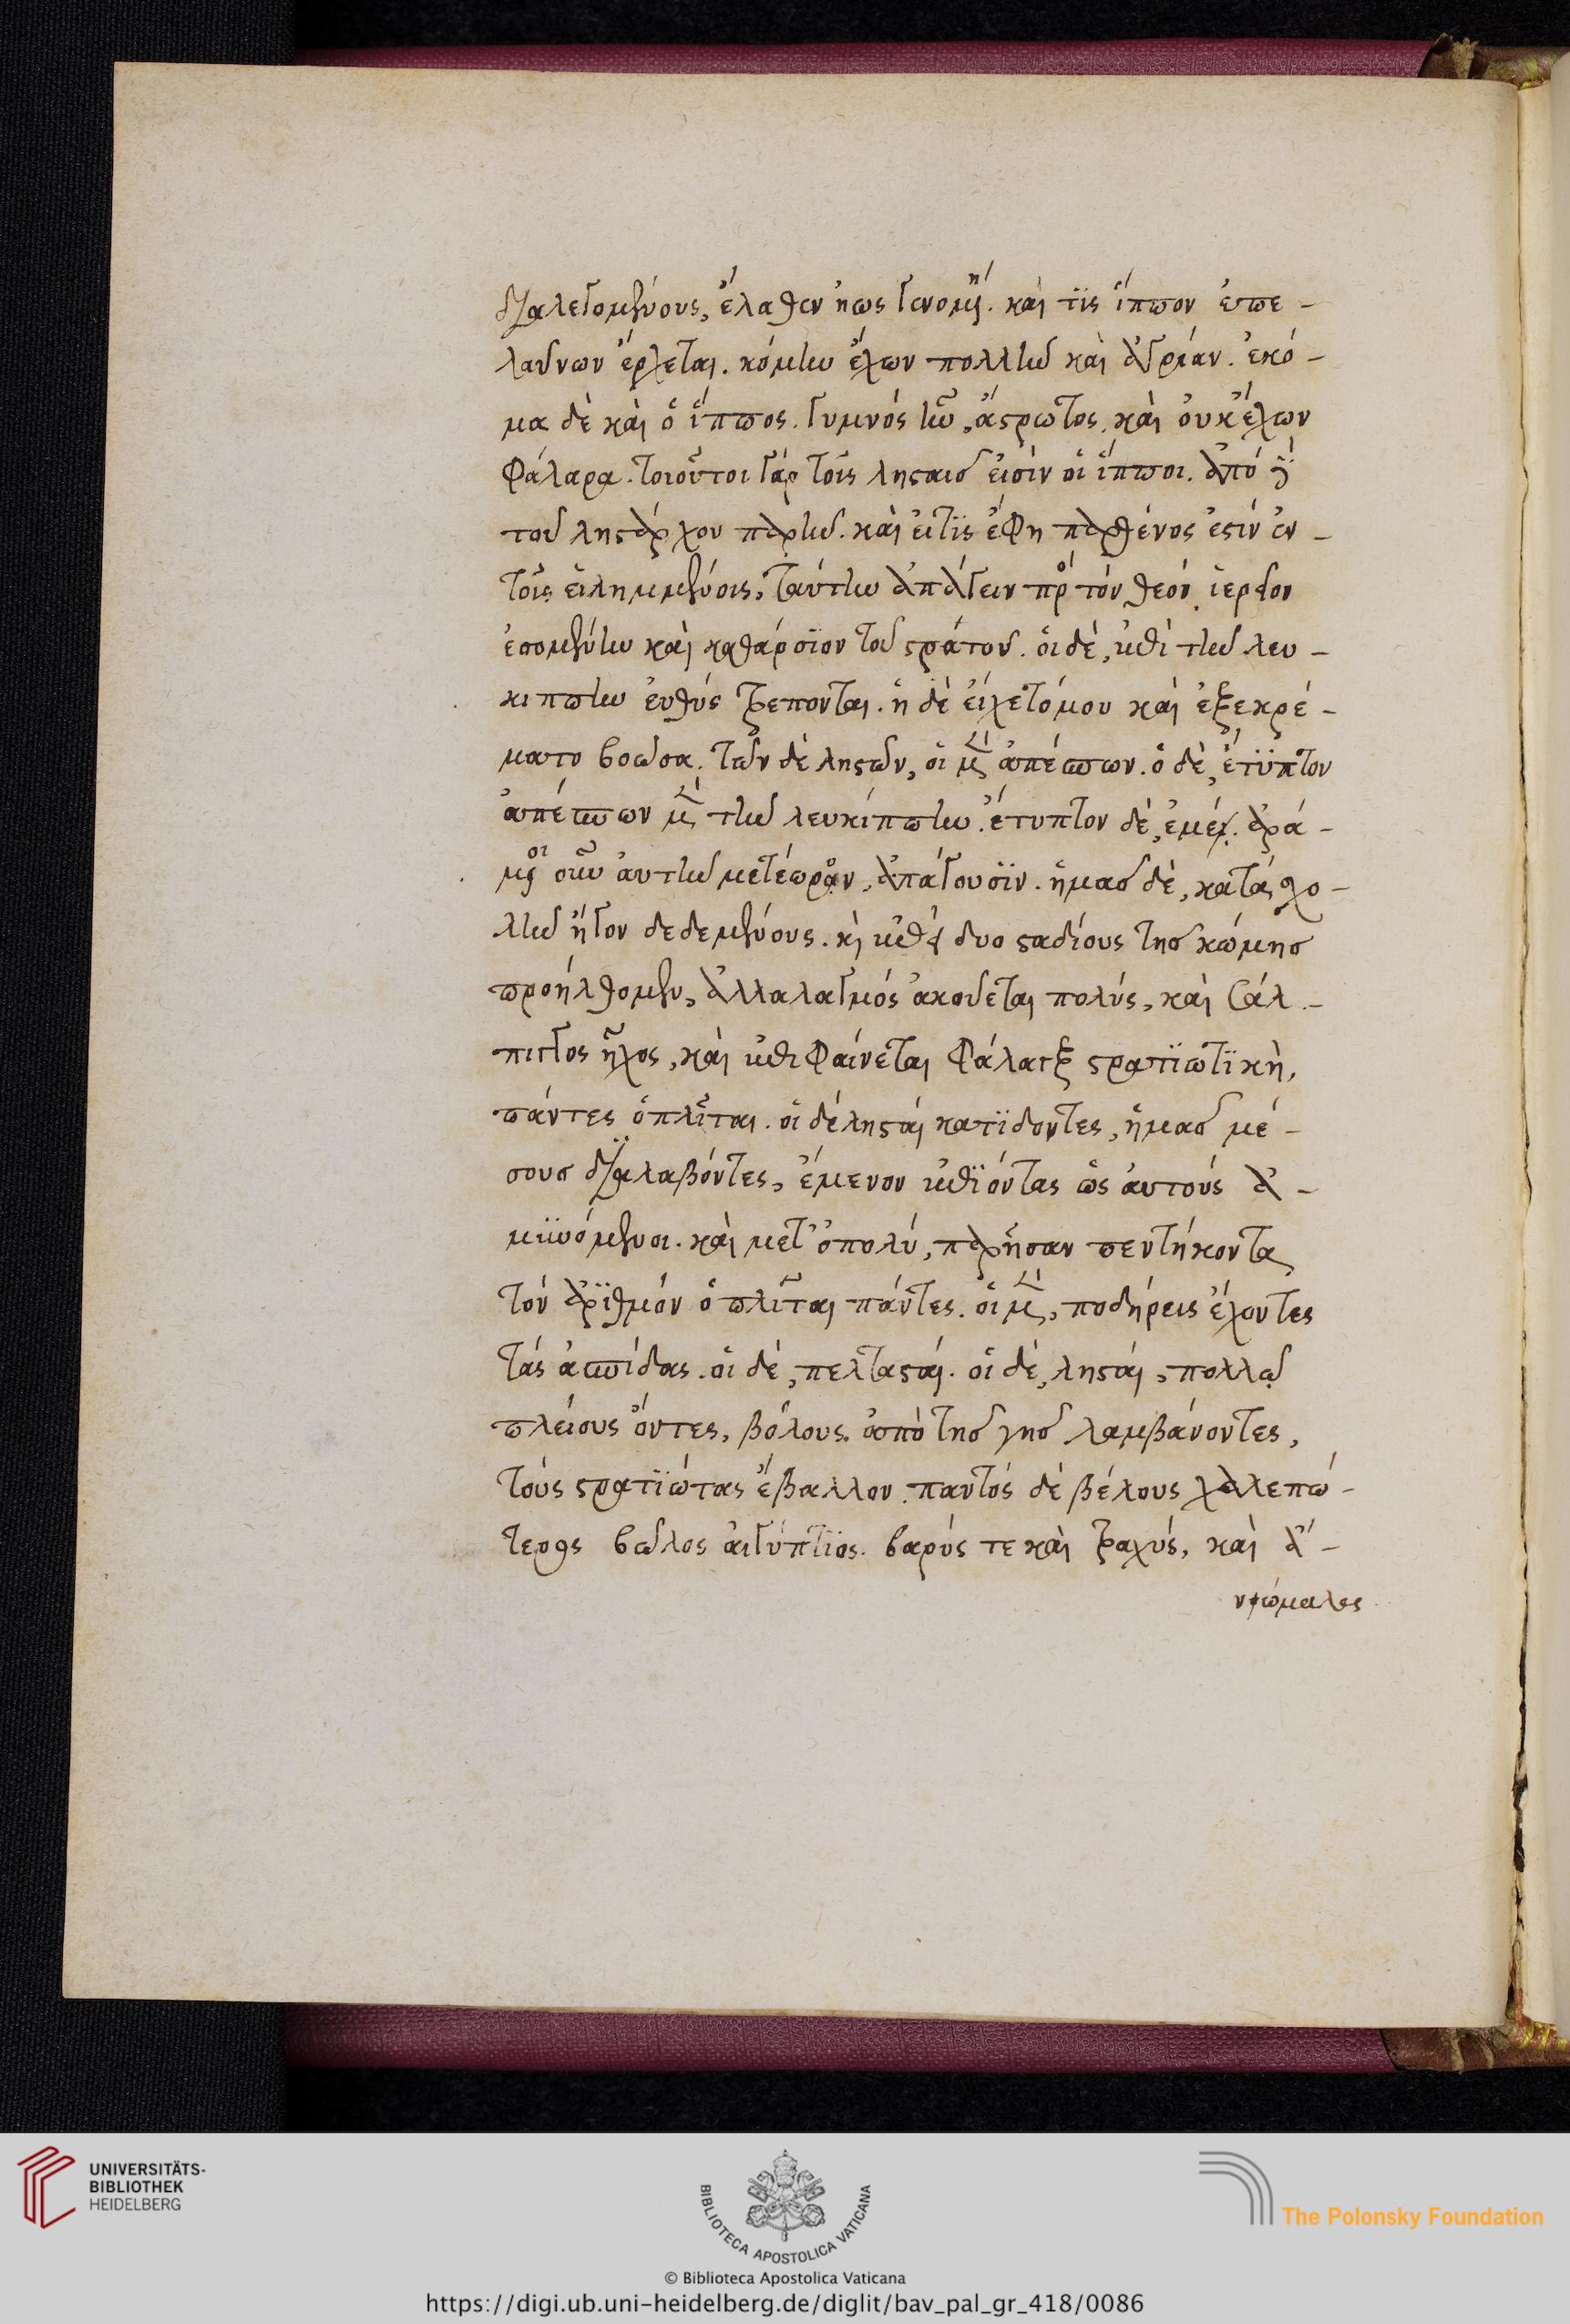 διαλεγομένους, ἔλαθεν ἥως γενομένη. καὶ τίς ἵππον ἐπε-
λαύνων ἔρχεται. κόμην ἔχων πολλὴν καὶ ἀγρίαν. ἐκό-
μα δὲ καὶ ὁ ἵππος. γυμνός ἦν, ἄστρωτος, καὶ οὐκ ἔχων
φάλαρα. τοιοῦτοι γάρ τοῖς λησταῖς εἰσίν οἱ ἵπποι. ἀπό δὲ
τοῦ ληστάρχου παρῆν. καὶ εἴτις ἔφη παρθένος ἐστίν ἐν
τοῖς εἰλημμένοις, ταύτην ἀπάγειν πρὸς τόν θεόν, ἱερεῖον
ἐσομένην καὶ καθάρσιον τοῦ στρατοῦ. οἱ δὲ, ἐπὶ τὴν λευ-
κίππην εὐθύς τρέπονται. ἡ δὲ εἴχετό μου καὶ ἐξεκρέ-
ματο βοῶσα. τῶν δὲ ληστῶν, οἱ μὲν ἀπέσπων. ὁ δὲ, ἔτυπτον
ἀπέσπων μὲν τὴν λευκίππην. ἔτυπτον δὲ, ἐμέ. ἀρά-
μενοι οὖν αὐτὴν μετέωρον, ἀπάγουσιν. ἡμᾶς δὲ, κατὰ σχο-
λὴν ἦγον δεδεμένους. καὶ ἐπεὶ δυο σταδίους τῆς κώμης
προήλθομεν, ἀλλαλαγμός ἀκούεται πολύς, καὶ σάλ-
πιγγος ἦχος, καὶ ἐπιφαίνεται φάλαγξ στρατιωτικὴ,
πάντες ὁπλῖται. οἱ δέ λησταὶ κατιδόντες, ἡμᾶς μέ-
σους διαλαβόντες, ἔμενον ἐπιόντας ὡς αὐτούς ἀ-
μυνόμενοι. καὶ μετ' ὀπολύ, παρῆσαν πεντήκοντα
τόν ἀριθμόν ὁπλῖται πάντες. οἱ μὲν, ποδήρεις ἔχοντες
τάς ἀσπίδας. οἱ δέ, πελτασταί. οἱ δέ, λησταί, πολλῷ
πλείους ὄντες, βόλους ἀπὸ τῆς γῆς λαμβάνοντες,
τούς στρατιώτας ἔβαλλον. παντός δέ βέλους χαλεπώ-
τερος βῶλος αἰγύπτιος. βαρύς τε καὶ τραχύς, καὶ ἀ-
νώμαλος
UNIVERSITÄTS-
BIBLIOTHEK
HEIDELBERG
BIBLIOTECA APOSTOLICA VATICANA
The Polonsky Foundation
© Biblioteca Apostolica Vaticana
https://digi.ub.uni-heidelberg.de/diglit/bav_pal_gr_418/0086